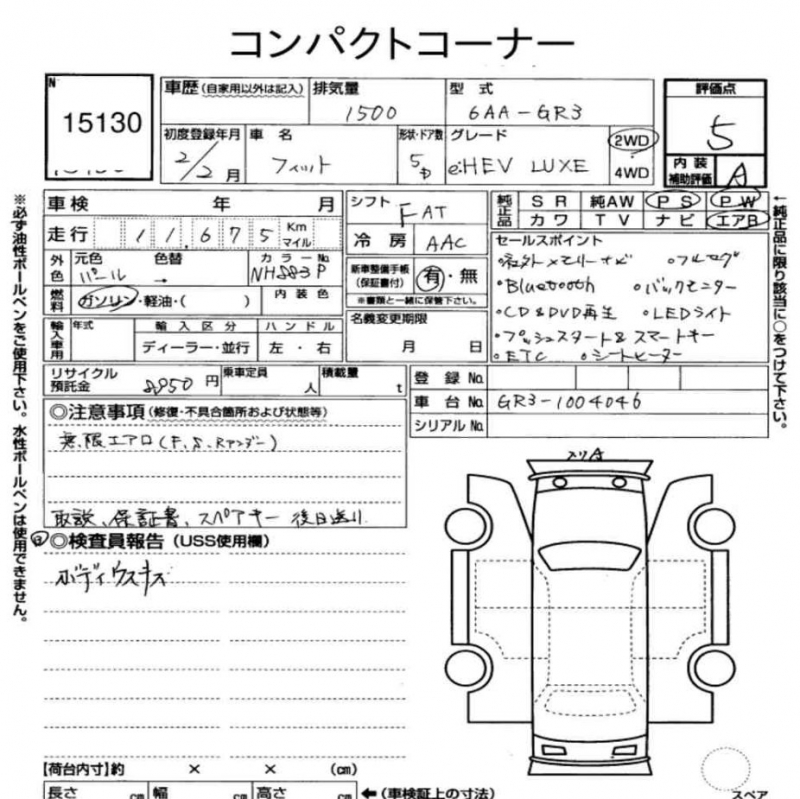 コンパクトコーナー
N
15130
車歴 (自家用以外は記入) 排気量 1500 型式 6AA-GR3
評価点 5
初度登録年月 2/2月 車名 フィット 形状・ドア数 5D グレード e:HEV LUXE 2WD 4WD
内装補助評価 A
車検 年 月
シフト FAT
純正品 SR 純AW PS PW
カワ TV ナビ エアB
走行 11,675 Km マイル
冷房 AAC
外色 元色 パール 色替 → カラーNo NH883P
新車整備手帳 (保証書付) 有・無
※書類と一緒に保管下さい。
燃料 ガソリン・軽油・( ) 内装色
名義変更期限 月 日
輸入車用 年式 輸入区分 ハンドル
ディーラー・並行 左・右
セールスポイント
・社外メモリーナビ ・フルセグ
・Bluetooth ・バックモニター
・CD&DVD再生 ・LEDライト
・プッシュスタート&スマートキー
・ETC ・シートヒーター
リサイクル預託金 8,950円 乗車定員 人 積載量 t
登録No.
車台No. GR3-1004046
シリアルNo.
◎注意事項 (修復・不具合箇所および状態等)
無限エアロ(F,S,Rアンダー)
取説、保証書、スペアキー 後日送り
◎検査員報告 (USS使用欄)
ボディウスキズ
【荷台内寸】約 × × (cm)
長さ cm 幅 cm 高さ cm ←(車検証上の寸法)
スペア
※必ず油性ボールペンをご使用下さい。水性ボールペンは使用できません。
←純正品に限り該当に○をつけて下さい。